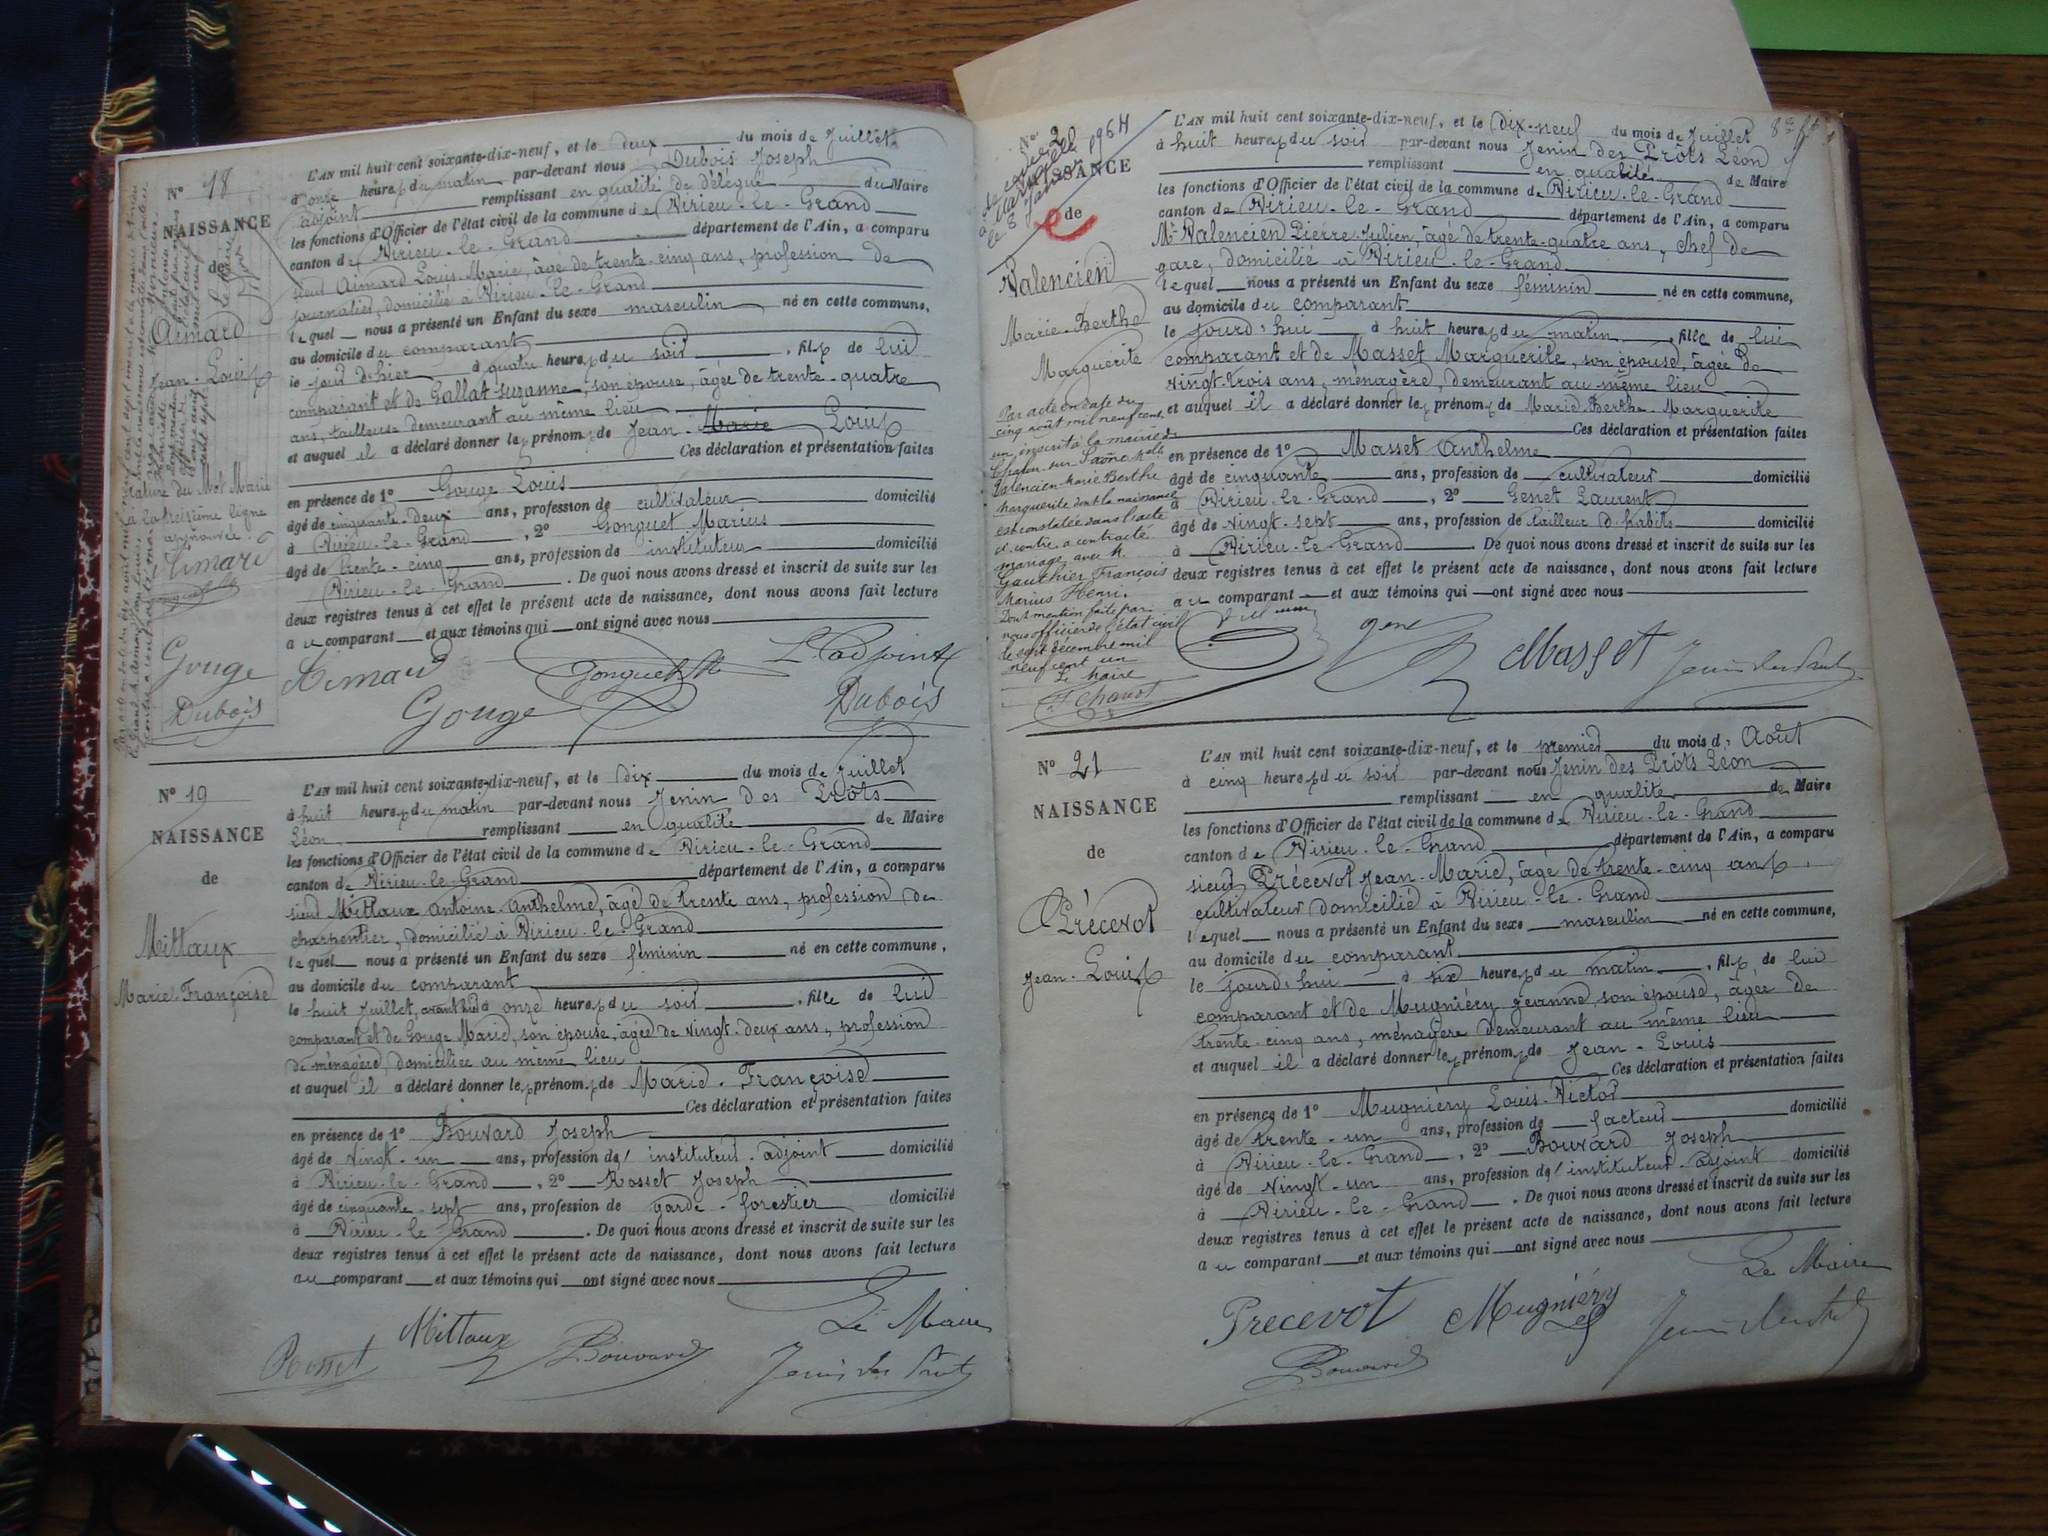 N° 18
NAISSANCE
de
Aimard
Jean-Louis
rature du Mot Marie
à la treizième ligne
approuvée.
Aimard
Gouge
Dubois
L'AN mil huit cent soixante-dix-neuf, et le deux du mois de Juillet
à onze heures du matin par-devant nous Dubois Joseph
adjoint remplissant en qualité de délégué du Maire
les fonctions d'Officier de l'état civil de la commune de Virieu-le-Grand
canton de Virieu-le-Grand département de l'Ain, a comparu
sieur Aimard Louis-Marie, âgé de trente-cinq ans, profession de
journalier, domicilié à Virieu-le-Grand
lequel nous a présenté un Enfant du sexe masculin né en cette commune,
au domicile du comparant
le jour d'hier à quatre heures du soir, fils de lui
comparant et de Gallat Suzanne, son épouse, âgée de trente-quatre
ans, tailleuse demeurant au même lieu
et auquel il a déclaré donner les prénoms de Jean-Marie Louis
Ces déclaration et présentation faites
en présence de 1° Gouge Louis
âgé de cinquante-deux ans, profession de cultivateur domicilié
à Virieu-le-Grand, 2° Gonguet Marius
âgé de trente-cinq ans, profession de instituteur domicilié
Virieu-le-Grand. De quoi nous avons dressé et inscrit de suite sur les
deux registres tenus à cet effet le présent acte de naissance, dont nous avons fait lecture
au comparant et aux témoins qui ont signé avec nous
Aimard Gonguet M L'adjoint
Gouge Dubois
N° 19
NAISSANCE
de
Mittaux
Marie-Françoise
L'AN mil huit cent soixante-dix-neuf, et le dix du mois de Juillet
à huit heures du matin par-devant nous Jenin des Prôts
Léon remplissant en qualité de Maire
les fonctions d'Officier de l'état civil de la commune de Virieu-le-Grand
canton de Virieu-le-Grand département de l'Ain, a comparu
sieur Mittaux Antoine-Anthelme, âgé de trente ans, profession de
charpentier, domicilié à Virieu-le-Grand
lequel nous a présenté un Enfant du sexe féminin né en cette commune,
au domicile du comparant
le huit Juillet, à onze heures du soir, fille de lui
comparant et de Gouge Marie, son épouse, âgée de vingt-deux ans, profession
de ménagère, domiciliée au même lieu
et auquel il a déclaré donner les prénoms de Marie-Françoise
Ces déclaration et présentation faites
en présence de 1° Bouvard Joseph
âgé de vingt-un ans, profession d'instituteur-adjoint domicilié
à Virieu-le-Grand, 2° Rosset Joseph
âgé de cinquante-sept ans, profession de garde-forestier domicilié
à Virieu-le-Grand. De quoi nous avons dressé et inscrit de suite sur les
deux registres tenus à cet effet le présent acte de naissance, dont nous avons fait lecture
au comparant et aux témoins qui ont signé avec nous
Le Maire
Rosset Mittaux Bouvard Jenin des Prots
N°
NAISSANCE
de
Valencien
Marie-Berthe
Marguerite
Par acte en date du
cinq août mil neuf cent
un, inscrit à la mairie de
sur Saône Melle
Valencien Marie Berthe
Marguerite dont la naissance
est constatée dans l'acte
ci-contre a contracté
mariage avec M.
Gauthier François
Marius Henri.
Dont mention faite par
nous officier de l'état civil
le sept décembre mil
neuf cent un
Le Maire
L'AN mil huit cent soixante-dix-neuf, et le dix-neuf du mois de Juillet
à huit heures du soir par-devant nous Jenin des Prôts Léon
remplissant en qualité de Maire
les fonctions d'Officier de l'état civil de la commune de Virieu-le-Grand
canton de Virieu-le-Grand département de l'Ain, a comparu
Mr Valencien Pierre-Julien, âgé de trente-quatre ans, chef de
gare, domicilié à Virieu-le-Grand
lequel nous a présenté un Enfant du sexe féminin né en cette commune,
au domicile du comparant
le jourd'hui à huit heures du matin, fille de lui
comparant et de Masset Marguerite, son épouse, âgée de
vingt-trois ans, ménagère, demeurant au même lieu
et auquel il a déclaré donner les prénoms de Marie-Berthe-Marguerite
Ces déclaration et présentation faites
en présence de 1° Masset Anthelme
âgé de cinquante ans, profession de cultivateur domicilié
à Virieu-le-Grand, 2° Genet Laurent
âgé de vingt-sept ans, profession de tailleur d'habits domicilié
à Virieu-le-Grand. De quoi nous avons dressé et inscrit de suite sur les
deux registres tenus à cet effet le présent acte de naissance, dont nous avons fait lecture
au comparant et aux témoins qui ont signé avec nous
Masset Jenin des Prots
N° 21
NAISSANCE
de
Précevot
Jean-Louis
L'AN mil huit cent soixante-dix-neuf, et le premier du mois d'Août
à cinq heures du soir par-devant nous Jenin des Prôts Léon
remplissant en qualité de Maire
les fonctions d'Officier de l'état civil de la commune de Virieu-le-Grand
canton de Virieu-le-Grand département de l'Ain, a comparu
sieur Précevot Jean-Marie, âgé de trente-cinq ans,
cultivateur domicilié à Virieu-le-Grand
lequel nous a présenté un Enfant du sexe masculin né en cette commune,
au domicile du comparant
le jourd'hui à six heures du matin, fils de lui
comparant et de Mugniéry Jeanne, son épouse, âgée de
trente-cinq ans, ménagère demeurant au même lieu
et auquel il a déclaré donner les prénoms de Jean-Louis
Ces déclaration et présentation faites
en présence de 1° Mugniéry Louis-Victor
âgé de trente-un ans, profession de facteur domicilié
à Virieu-le-Grand, 2° Bouvard Joseph
âgé de vingt-un ans, profession d'instituteur-adjoint domicilié
à Virieu-le-Grand. De quoi nous avons dressé et inscrit de suite sur les
deux registres tenus à cet effet le présent acte de naissance, dont nous avons fait lecture
au comparant et aux témoins qui ont signé avec nous
Le Maire
Precevot Mugniéry Jenin des Prots
Bouvard